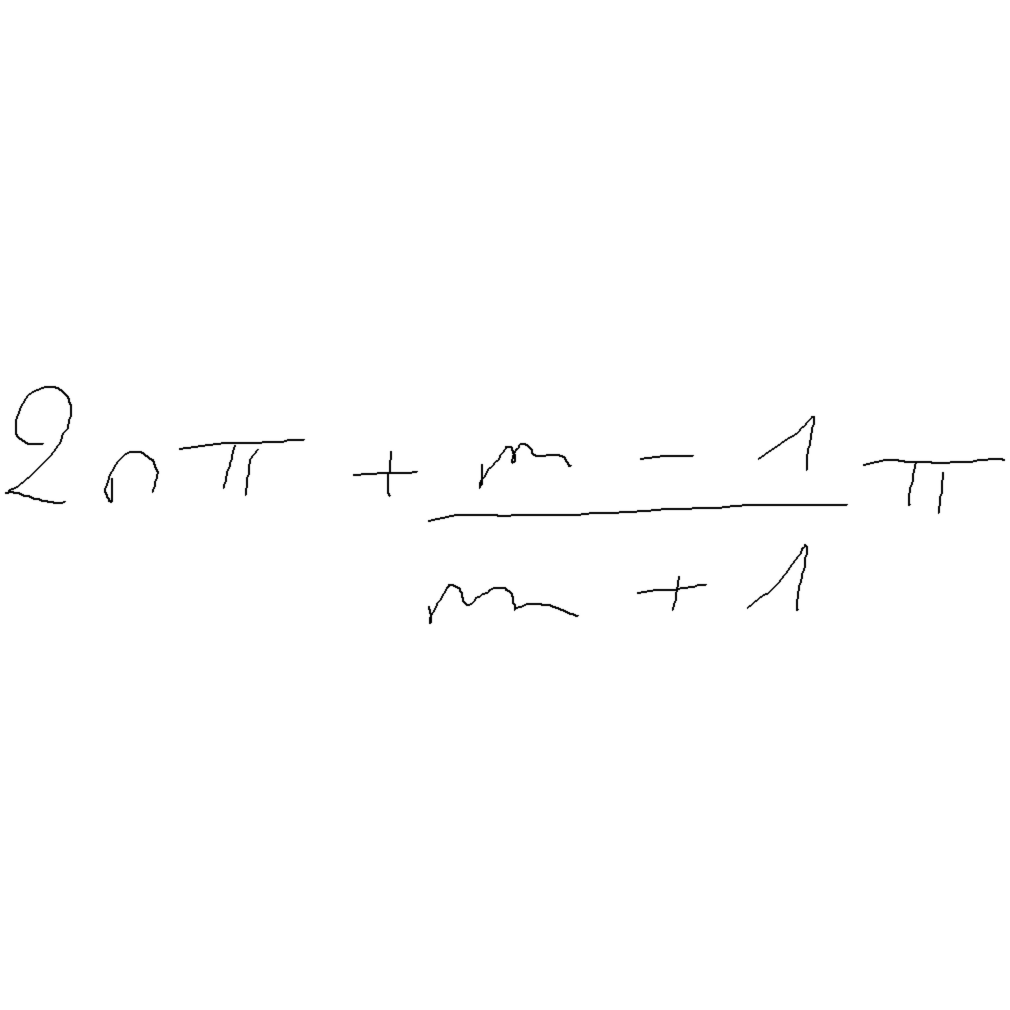 2nπ + \frac{m - 1}{m + 1} π